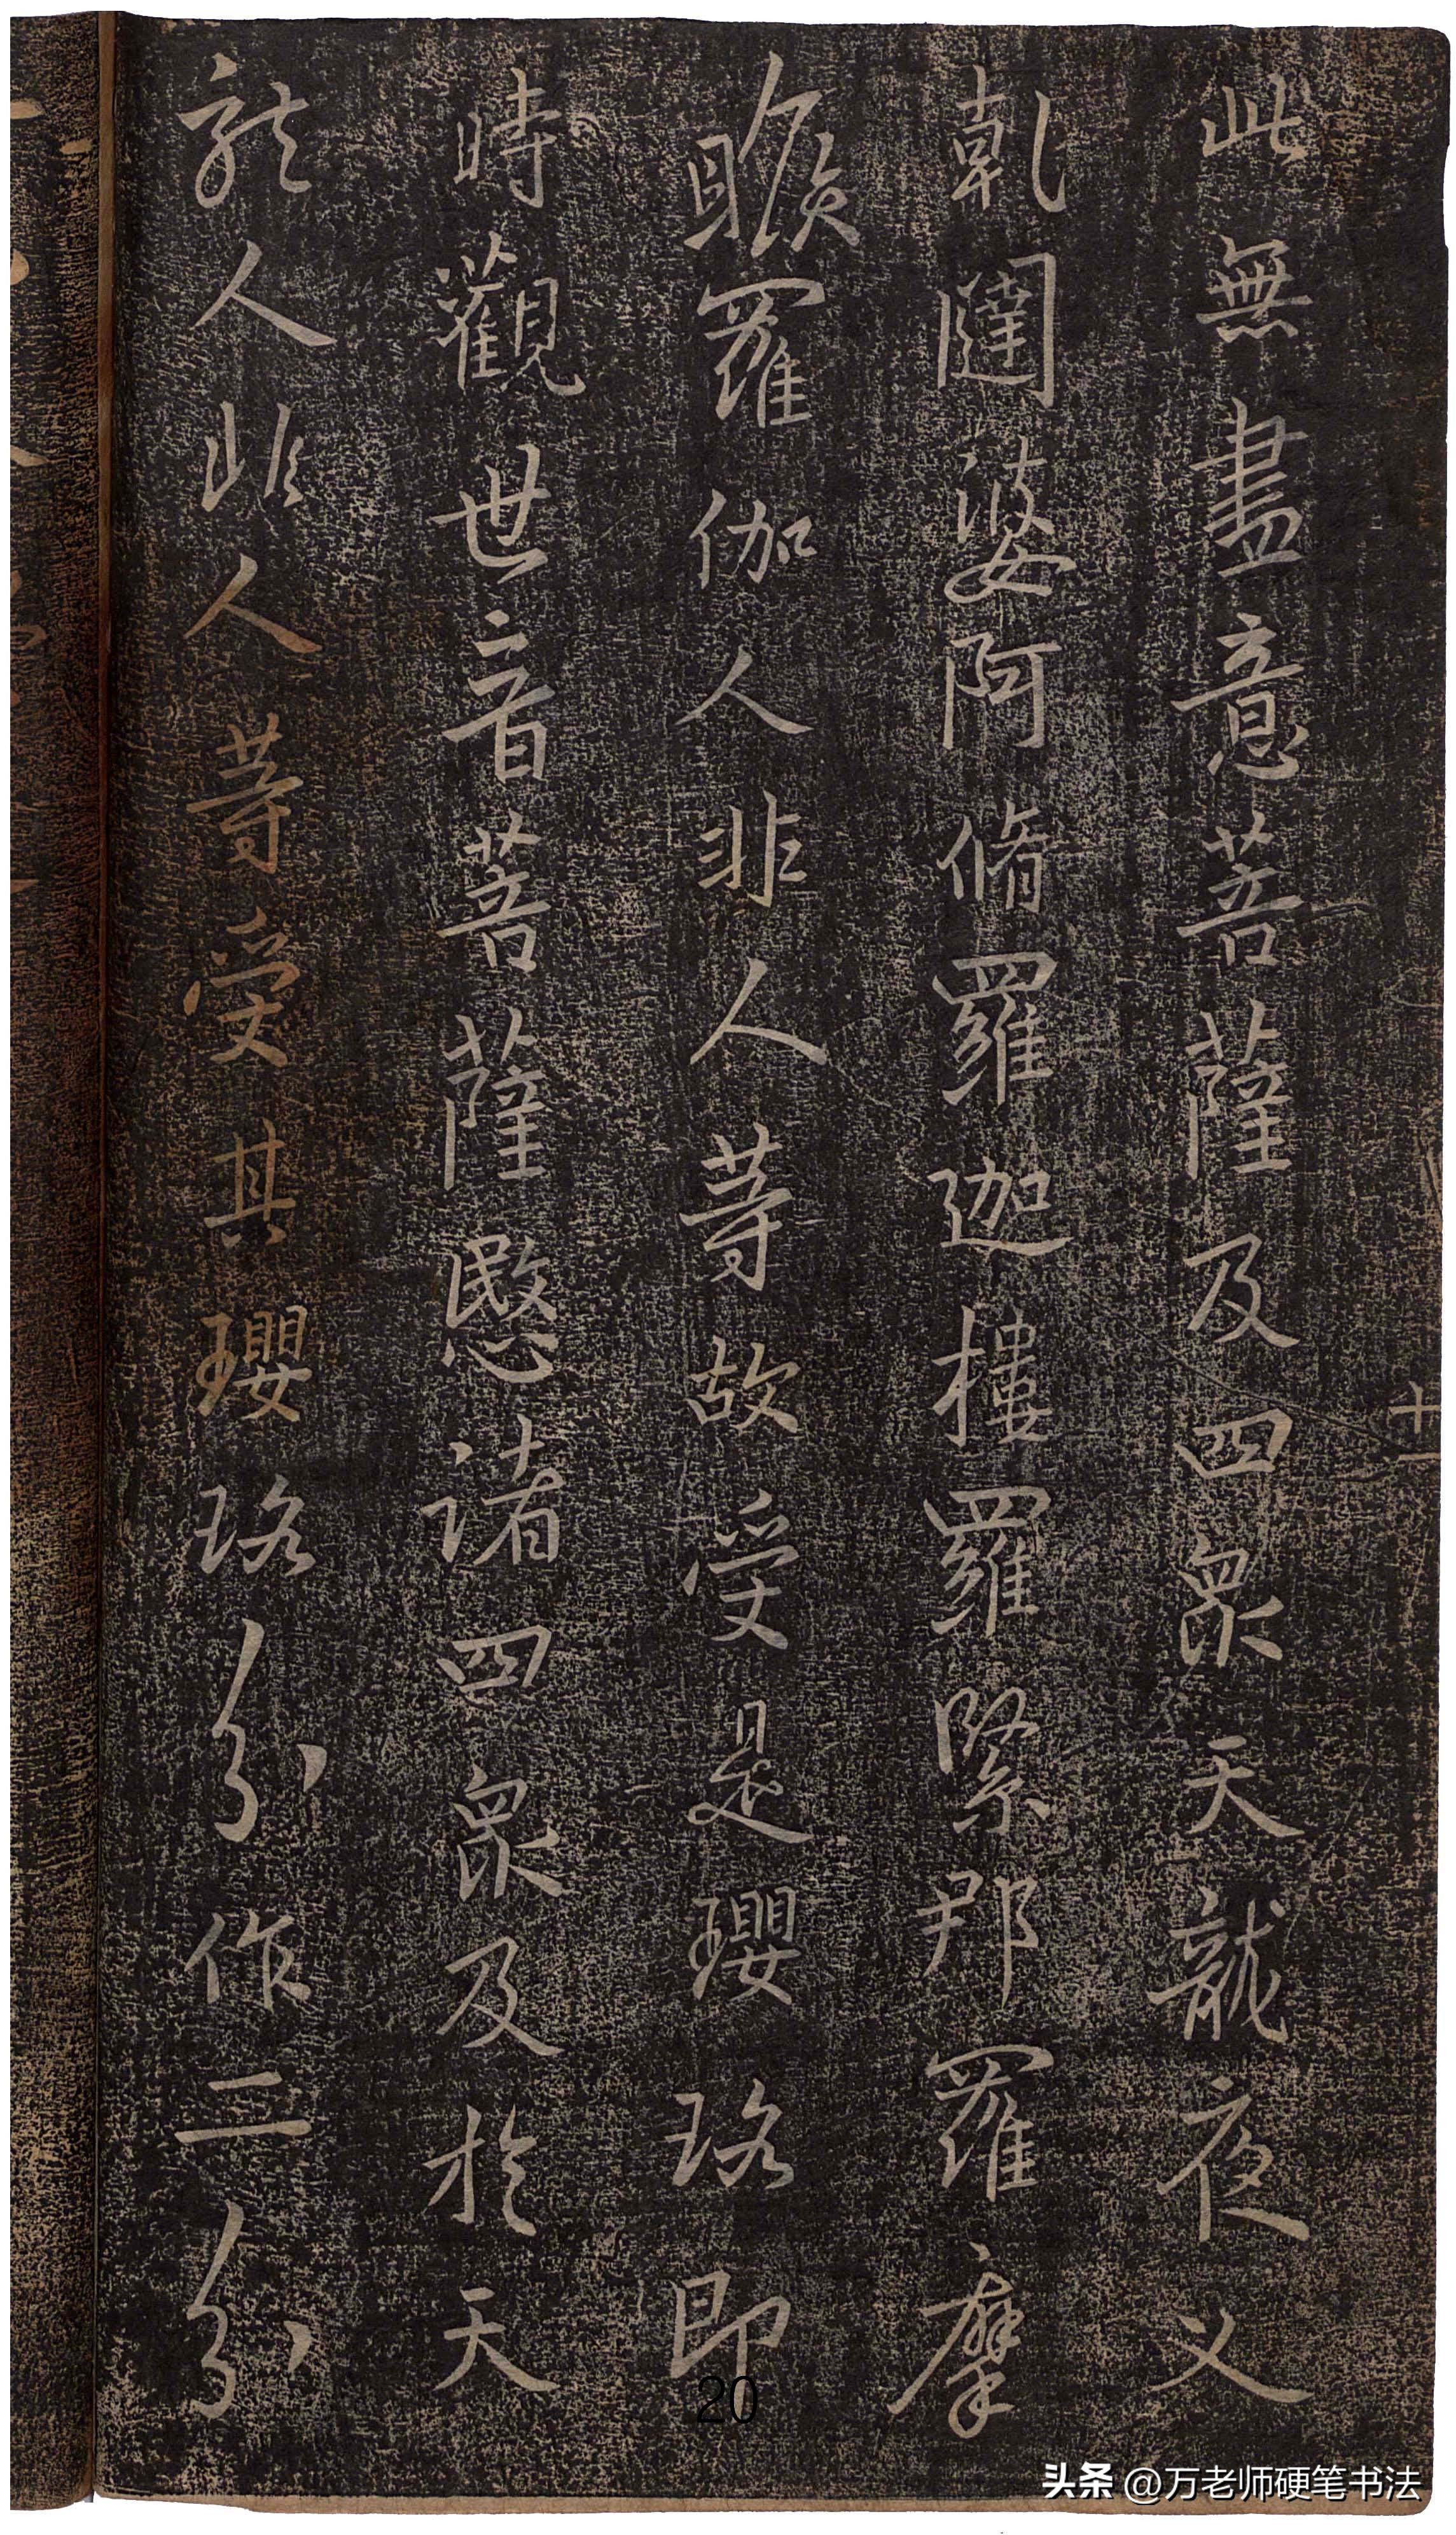 此無盡意菩薩及四衆天龍夜叉
乾闥婆阿脩羅迦樓羅緊那羅摩
睺羅伽人非人等故受是瓔珞即
時觀世音菩薩愍諸四衆及於天
龍人非人等受其瓔珞分作二分
十一
20
头条 @万老师硬笔书法